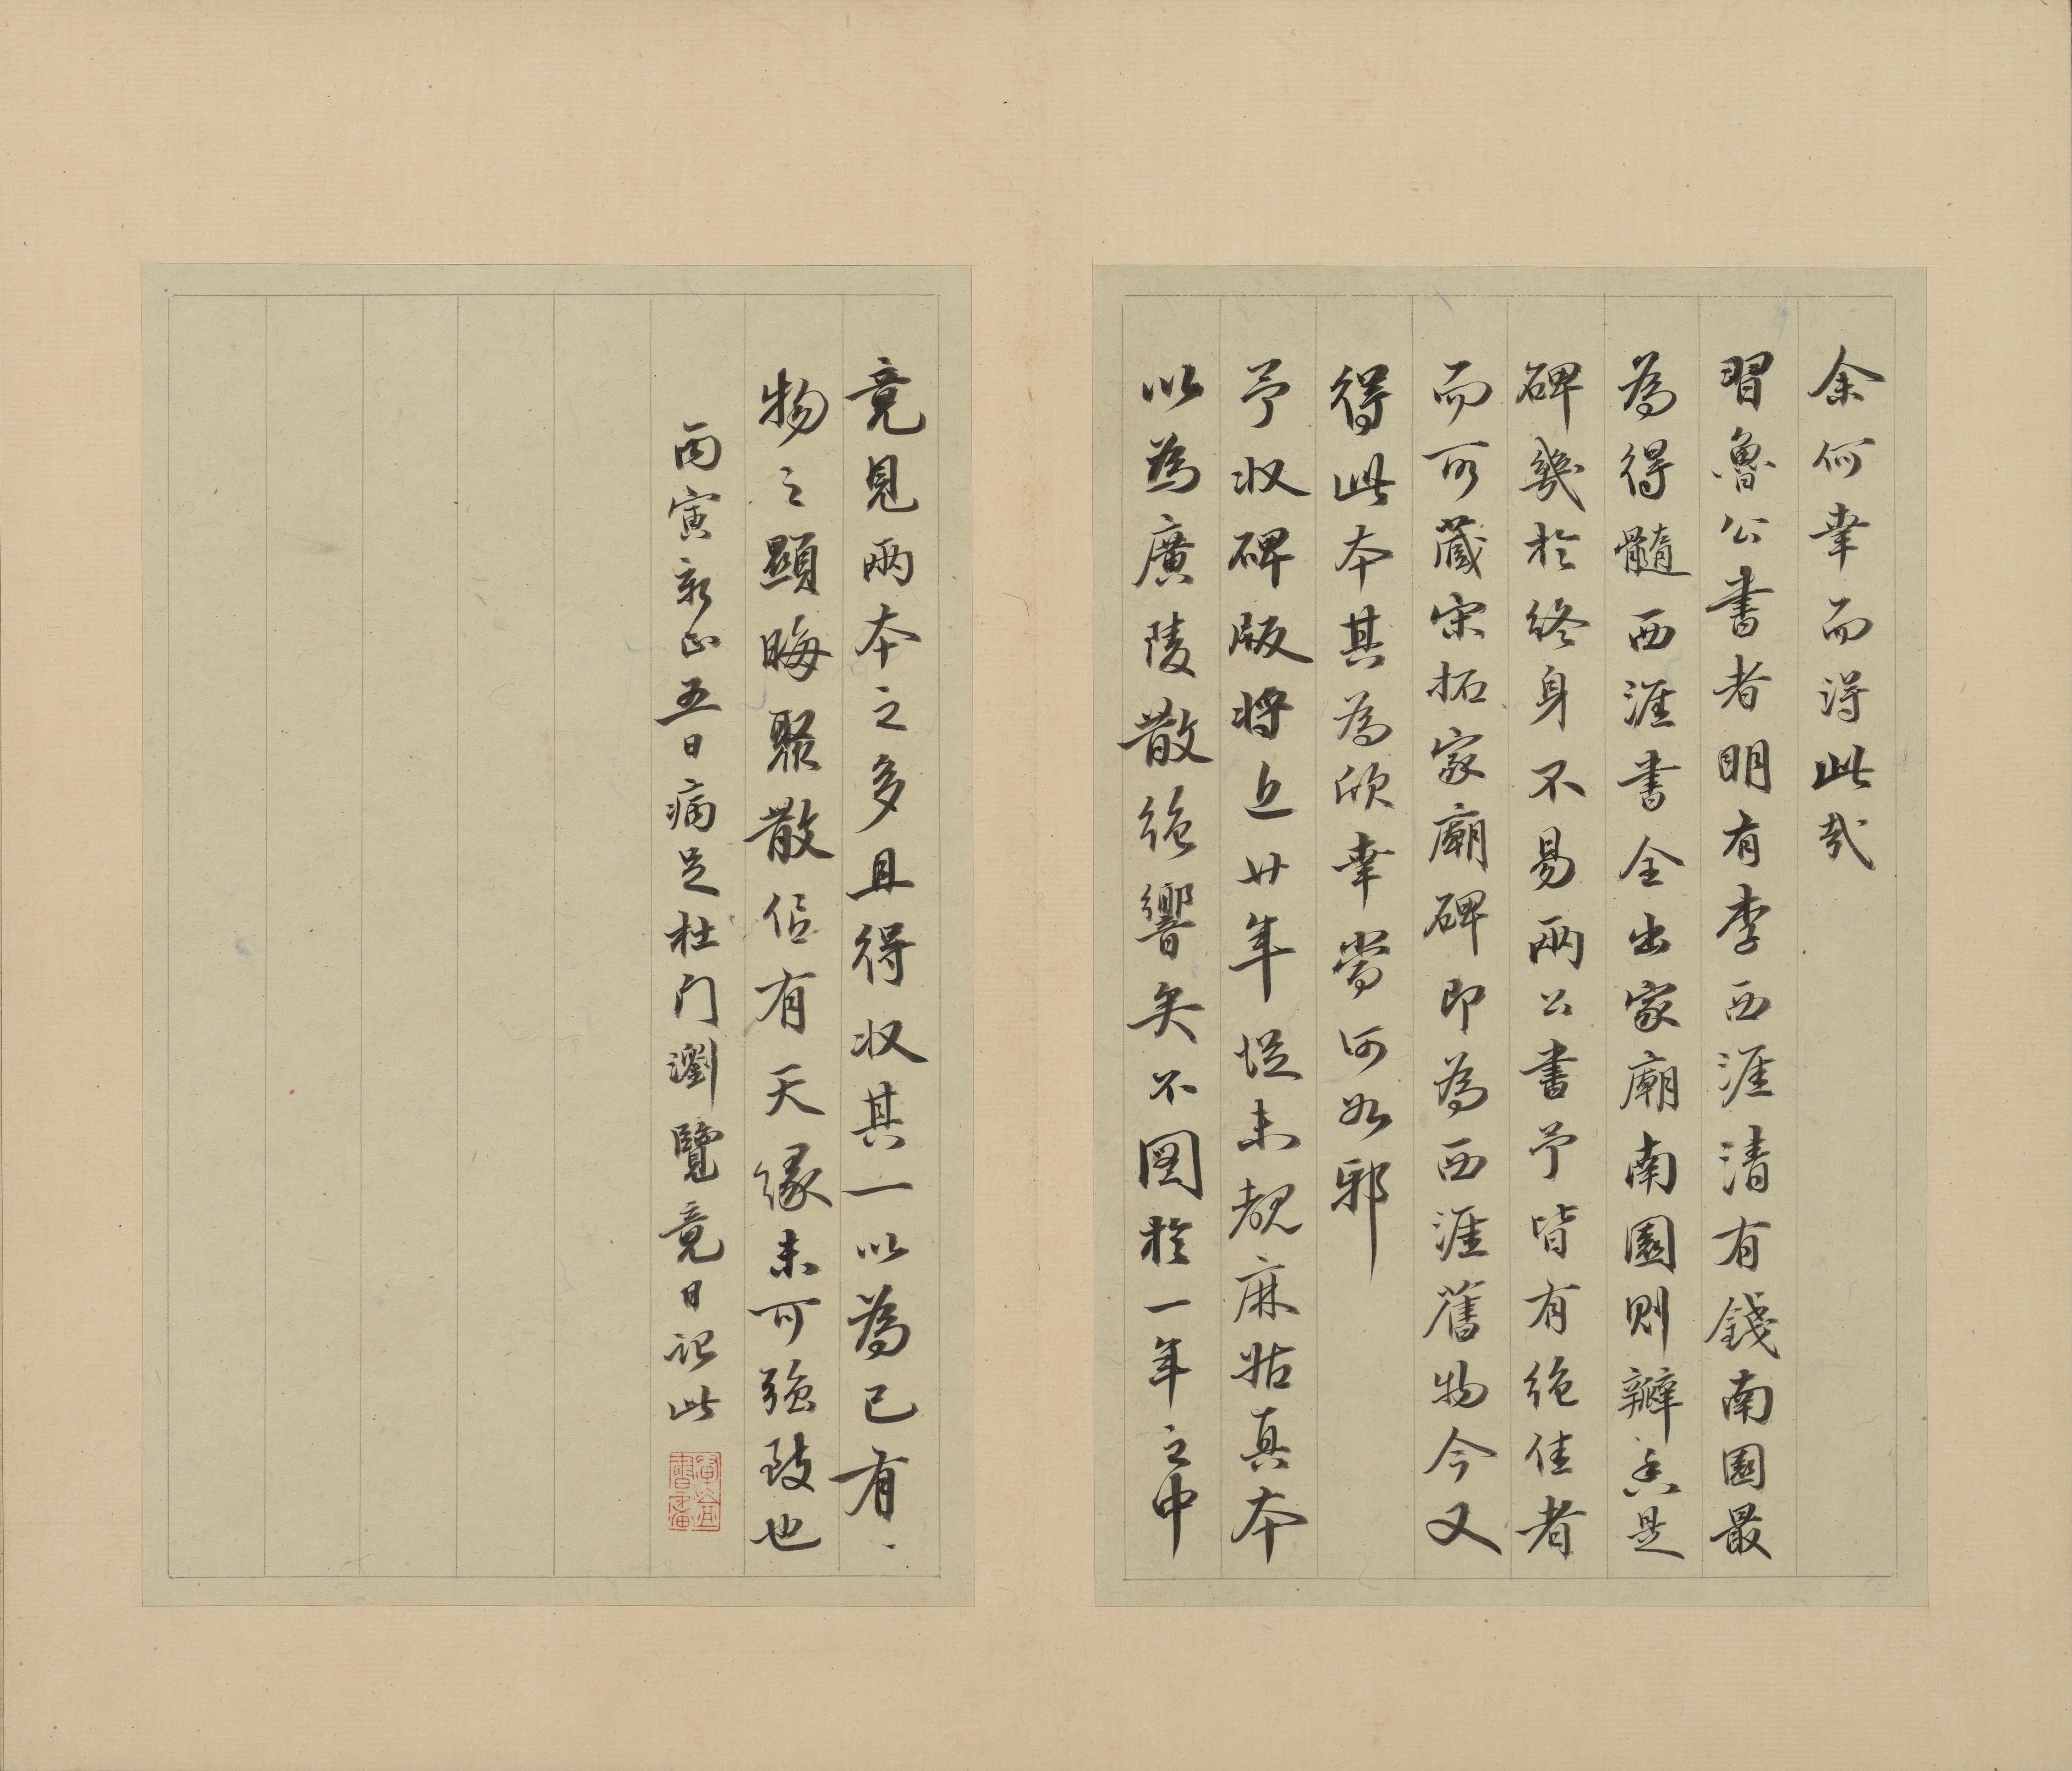 余何幸而得此哉
習魯公書者明有李西涯清有錢南園最
為得髓西涯書全出家廟南園則瓣香是
碑幾於終身不易兩公書予皆有絕佳者
而所藏宋拓家廟碑即為西涯舊物今又
得此本其為欣幸當何如邪
予收碑版將近廿年從未覩麻姑真本
以為廣陵散絕響矣不圖於一年之中
竟見兩本之多且得收其一以為己有
物之顯晦聚散信有天緣未可強致也
丙寅新正五日病足杜門瀏覽竟日記此